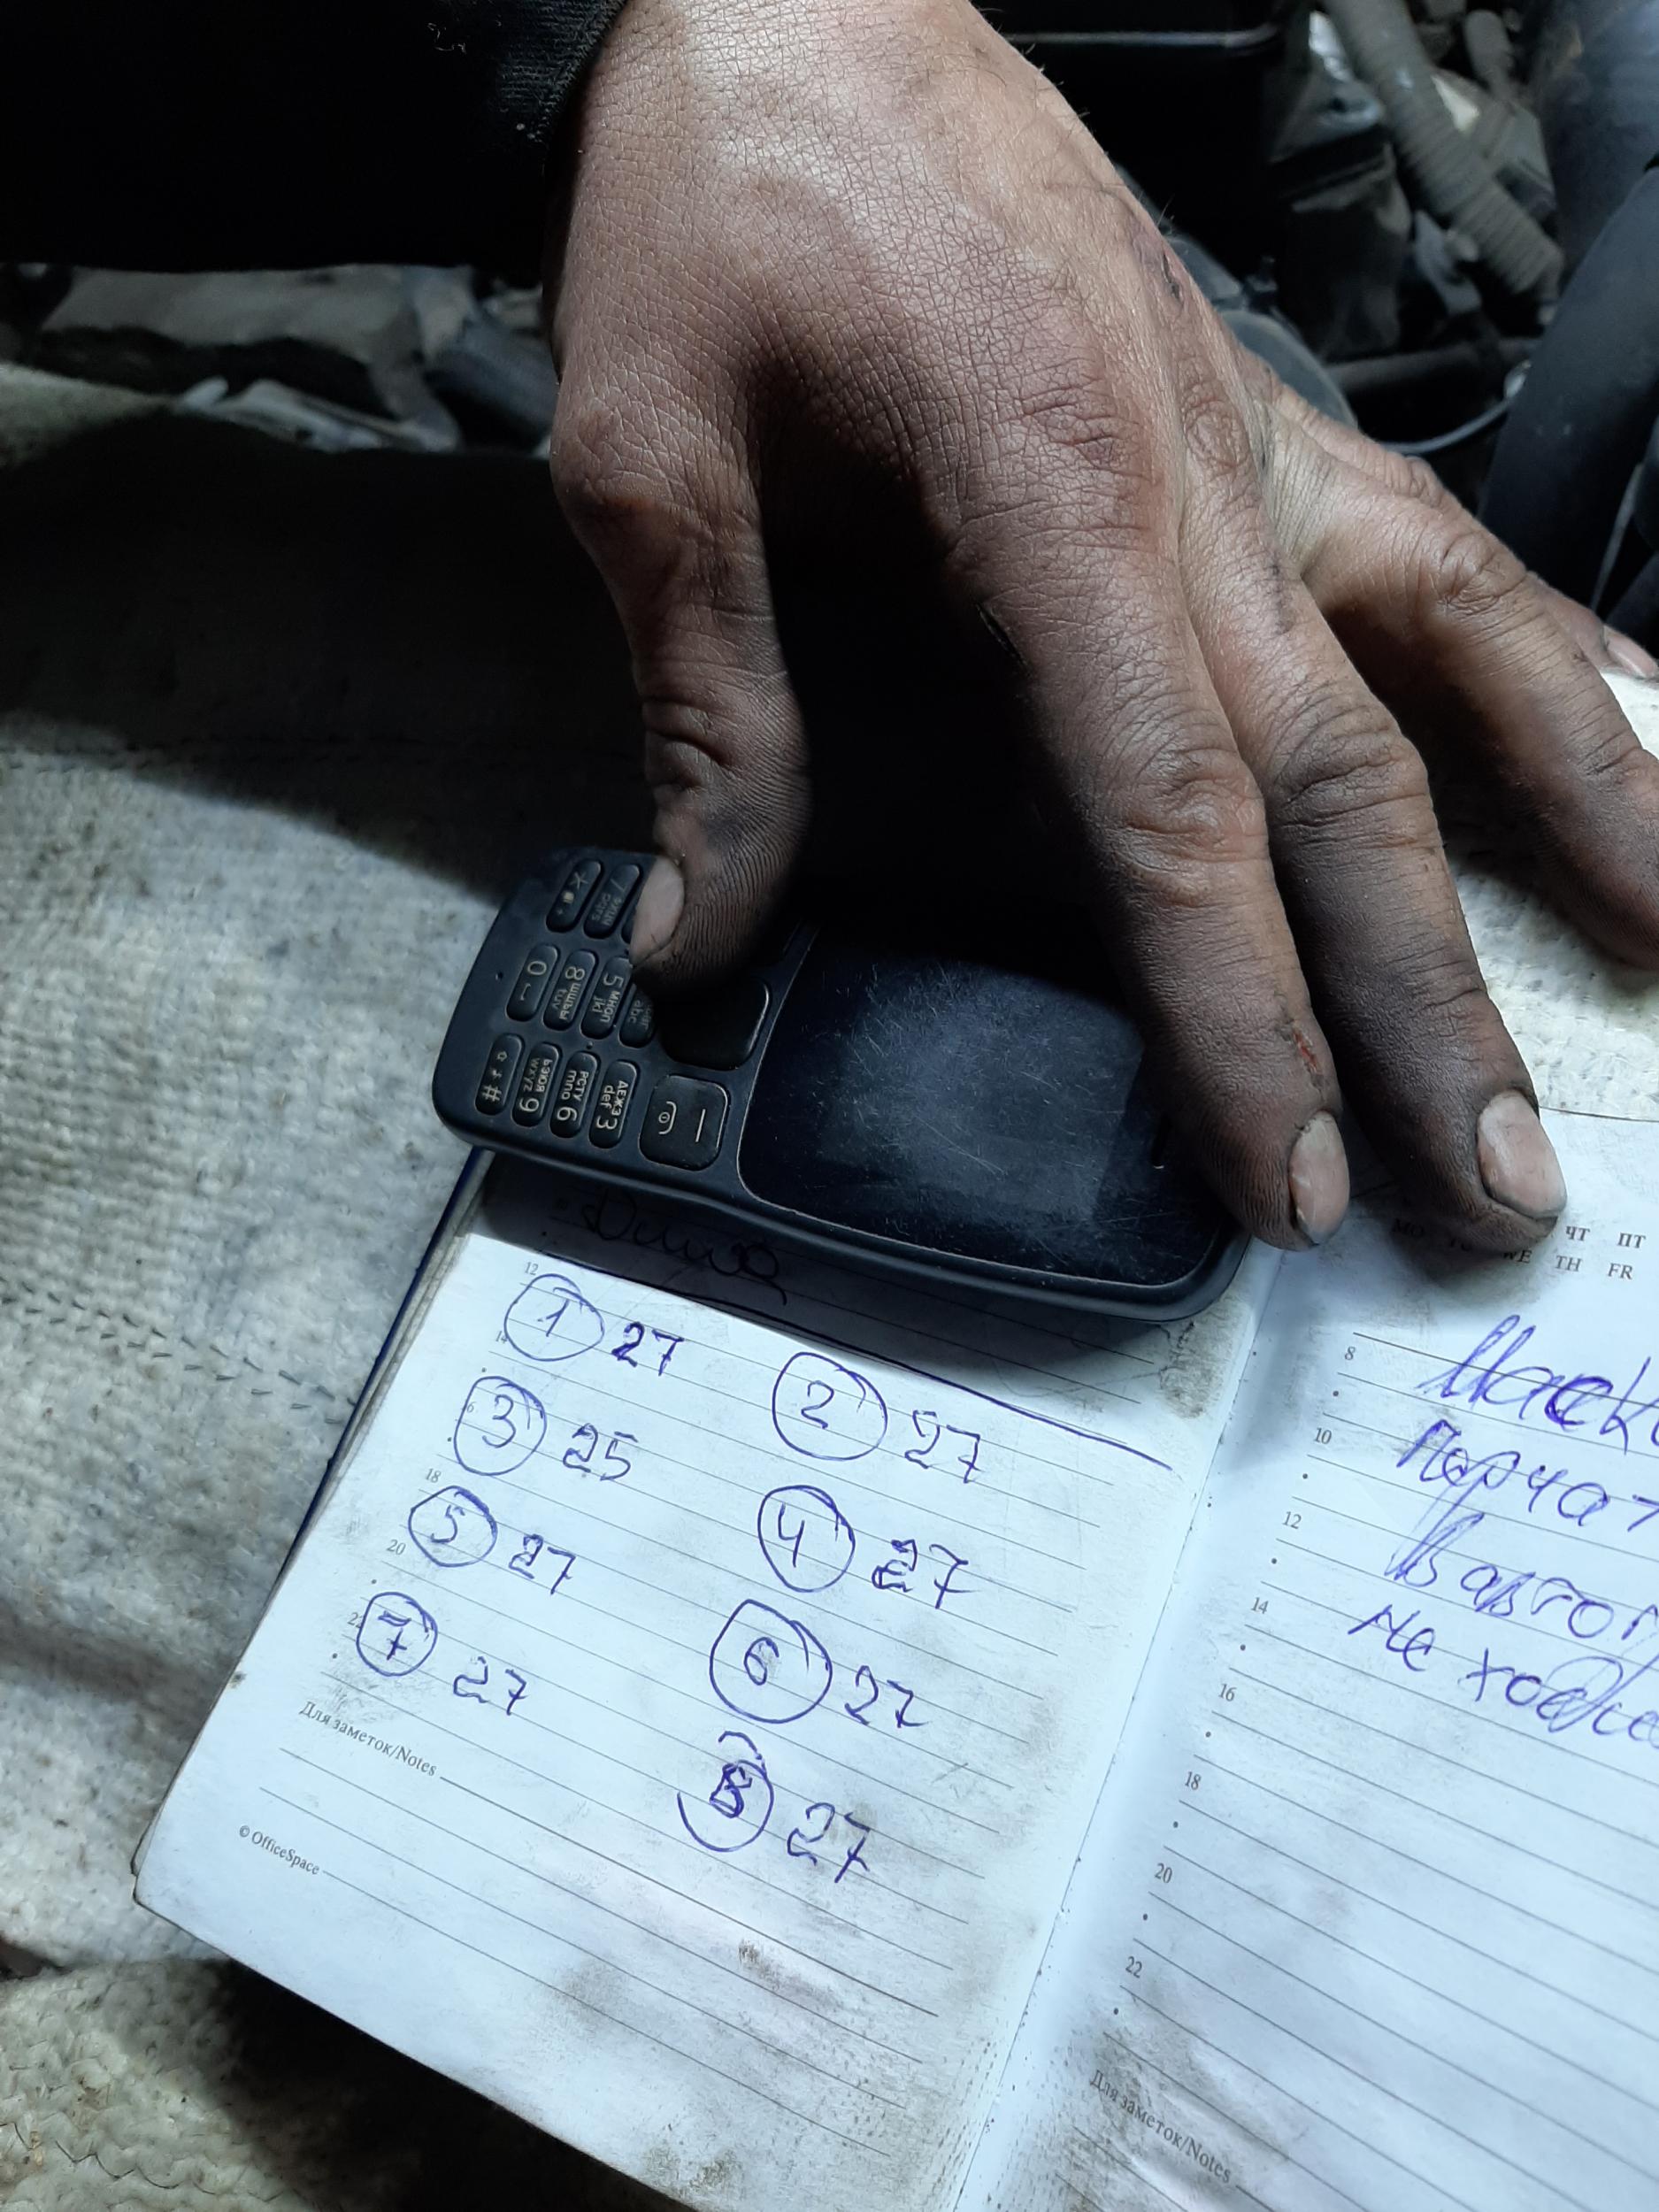 12
① 27 ② 27
14
③ 25 ④ 27
18
⑤ 27 ⑥ 27
20
⑦ 27 ⑧ 27
22
Для заметок/Notes
© OfficeSpace
ЧТ ПТ
WE TH FR
8
10
12
14
Не
16
18
20
22
Для заметок/Notes
* 0 #
8 шщъы tuv
ьэюя wxyz 9
5 мноп jkl
рсту mno 6
abc
дежз def 3